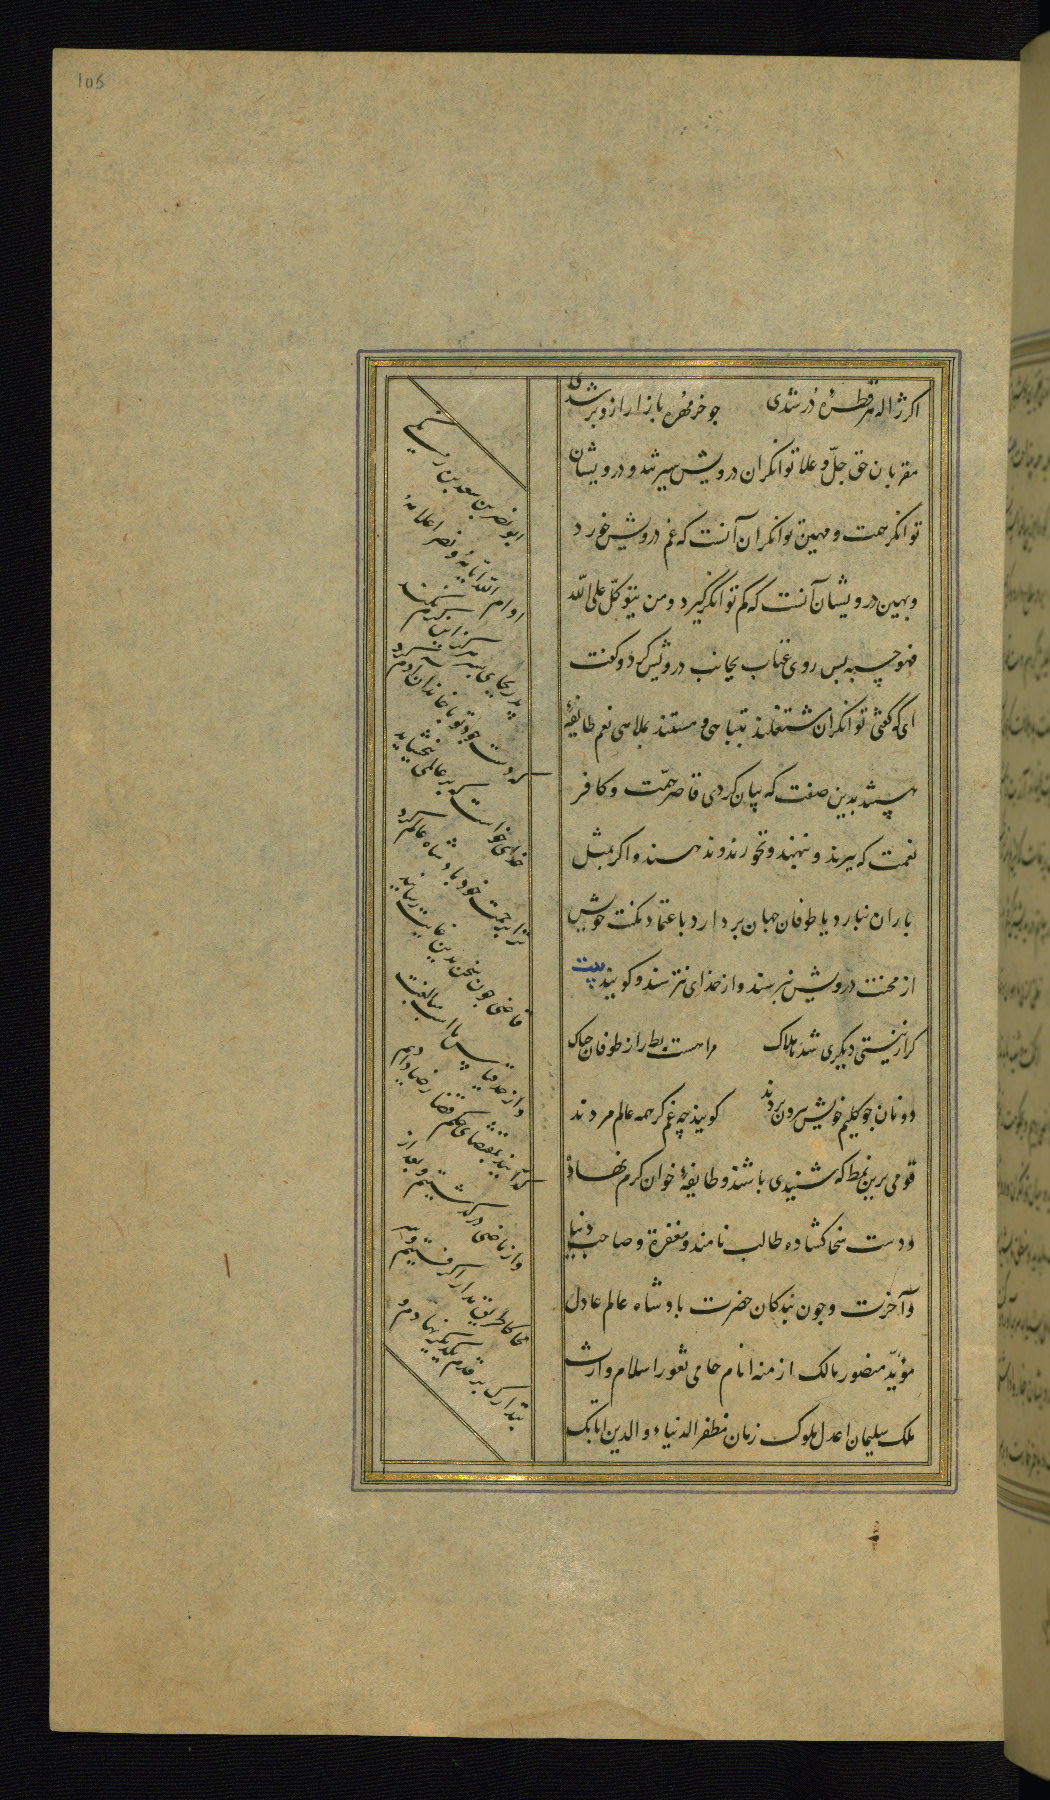 105
اکر ژاله هر قطرهٔ دُر شدی جو خرمهره بازار ازو پر شدی
مقربان حق جلّ و علا توانکران درویش سیرتند و درویشان
توانکر همت و مهین توانکران آنست که غم درویش خورد
و بهین درویشان آنست که کم توانکر کیرد و من یتوکّل علی اللّه
فهو حسبه پس روی عتاب بجانب درویش کرد و کفت
ای که کفتی توانکران مشتغلند بتباهی و مستند بملاهی نعم طایفهٔ
هستند بدین صفت که بیان کردی قاصر همّت و کافر
نعمت که ببرند و بنهند و نخورند و ندهند و اکر بمثل
باران نبارد یا طوفان جهان بردارد باعتماد مکنت خویش
از محنت درویش نپرسند و از خدای نترسند و کویند بیت
کر از نیستی دیکری شد هلاک مرا هست بط را ز طوفان چباک
دونان جو کلیم خویش بیرون بردند کویند چه غم کر همه عالم مردند
قومی برین نمط که شنیدی باشند و طایفهٔ خوان کرم نهاده
و دست سخا کشاده طالب نامند و مغفرة و صاحب دنیا
و آخرت و جون بندکان حضرت پادشاه عالم عادل
مؤیّد منصور مالک ازمنه انام حامی ثغور اسلام وارث
ملک سلیمان اعدل ملوک زمان مظفر الدنیاء و الدین اتابک
ابو نصر بن سعد بن زنکی
ادام اللّه ایّامه و نصر اعلامه
پدر بجای پسر هرکز این کرم نکند
که دست جود تو با خاندان آدم کرد
خدای خواست که بر عالمی ببخشاید
ترا برحمت خود پادشاه عالم کرد
قاضی جون سخن بدین غایت رسانید
و از حد قیاس ما اسب مبالغت
کذرانید بمقتضای حکم قضا رضا دادیم
و از ماضی درکذشتیم و بعد از
محاکا طریق مدارا کرفتیم و سر
بتدارک بر قدم یکدیکر نهادیم و